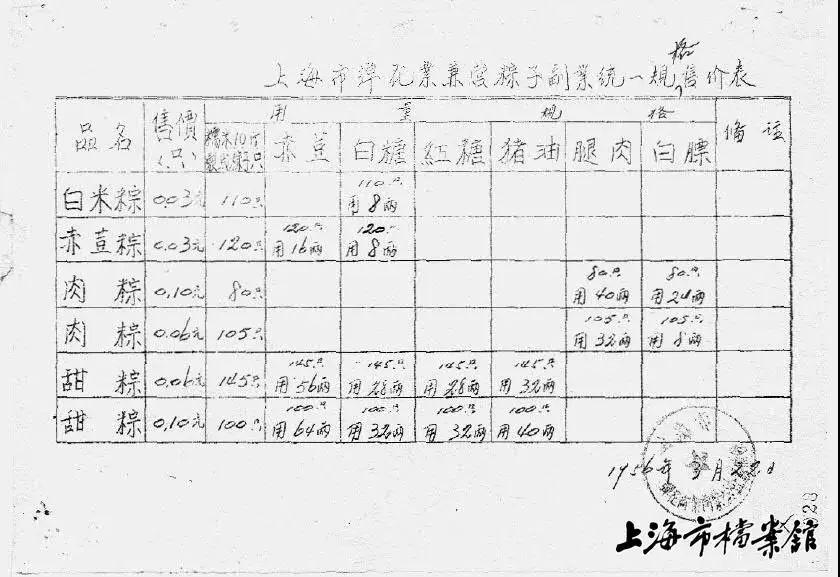 上海市彈花業兼營粽子副業統一規格售价表
品名 售價(只) 用量規格 備註
糯米10斤製成粽子只 赤荳 白糖 紅糖 猪油 腿肉 白膘
白米粽 0.03元 110只 110只用8兩
赤荳粽 0.03元 120只 120只用16兩 120只用8兩
肉粽 0.10元 80只 80只用40兩 80只用24兩
肉粽 0.06元 105只 105只用32兩 105只用8兩
甜粽 0.06元 145只 145只用56兩 145只用28兩 145只用28兩 145只用32兩
甜粽 0.10元 100只 100只用64兩 100只用32兩 100只用32兩 100只用40兩
1956年 月22日
028
上海市檔案舘